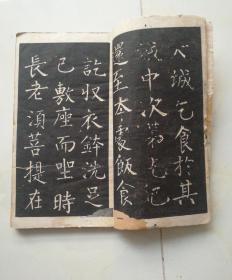 大城乞食於其
城中次第乞已
還至本處飯食
訖収衣鉢洗足
已敷座而坐時
長老須菩提在